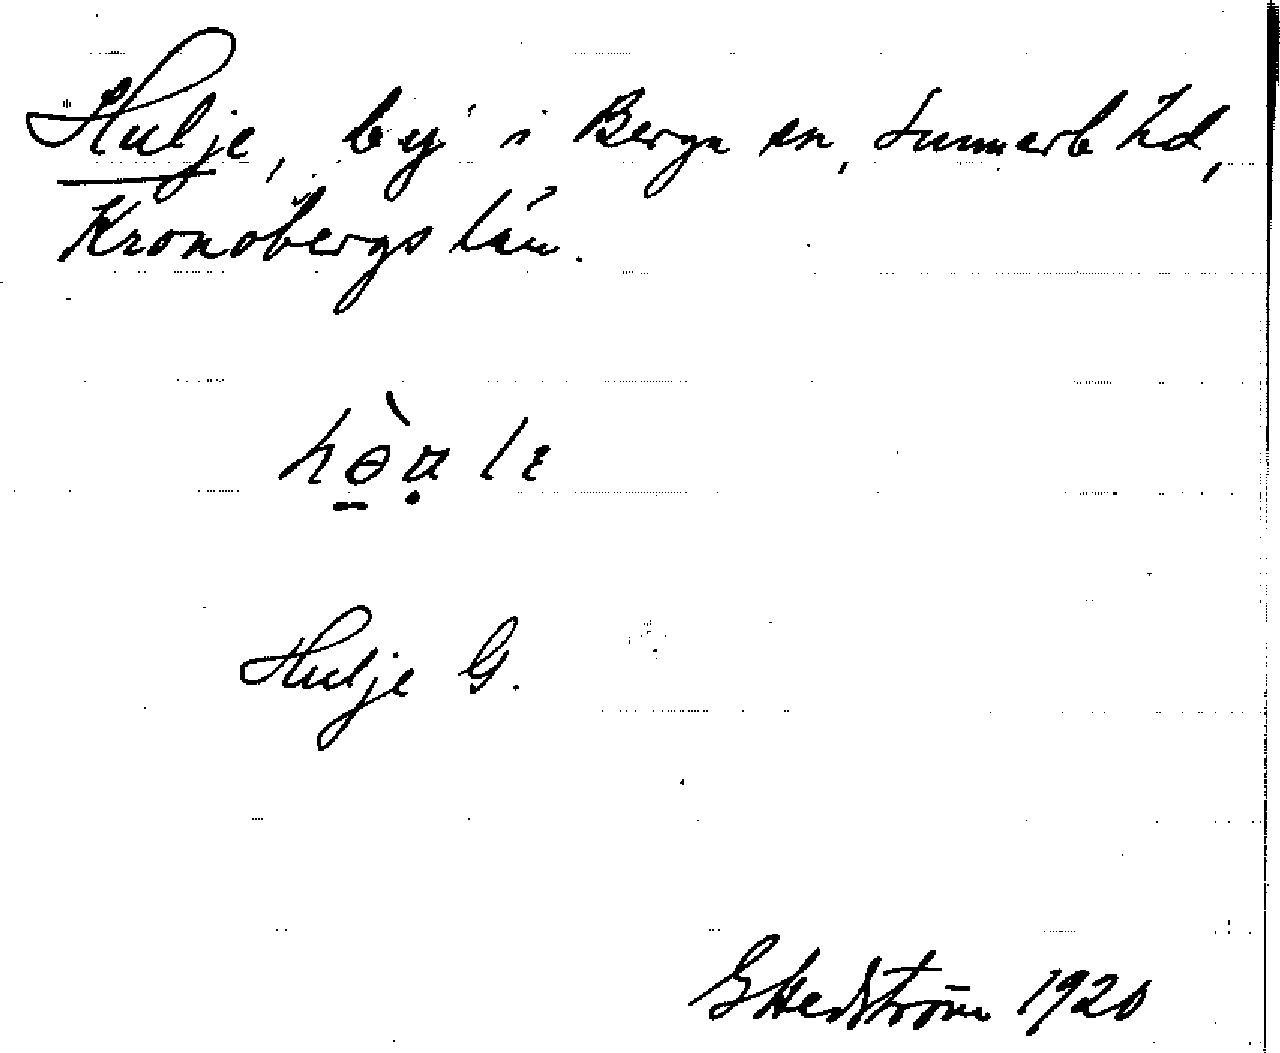 Hulje, by i Berga sn, Sunnerb hd,
Kronobergs län.
Hulje G.
G Hedström 1920